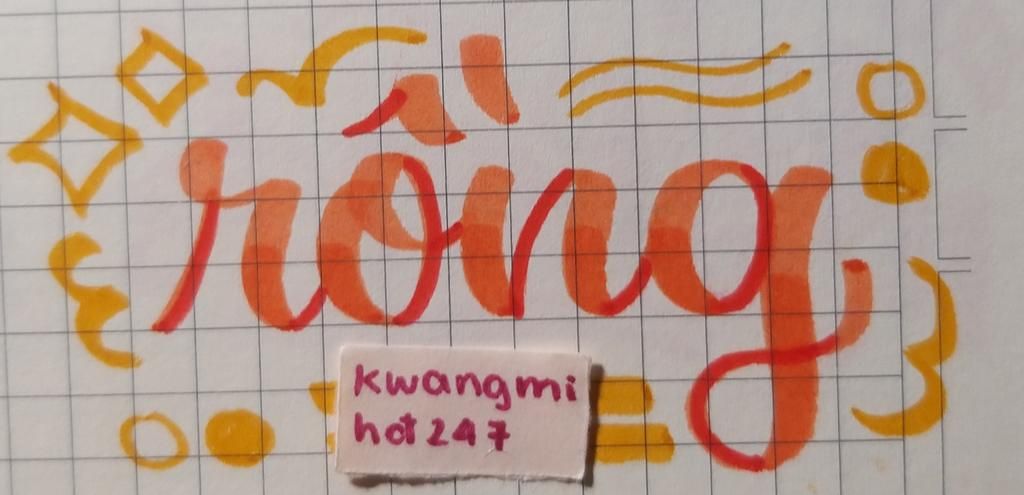 rồng
kwangmi
hot247